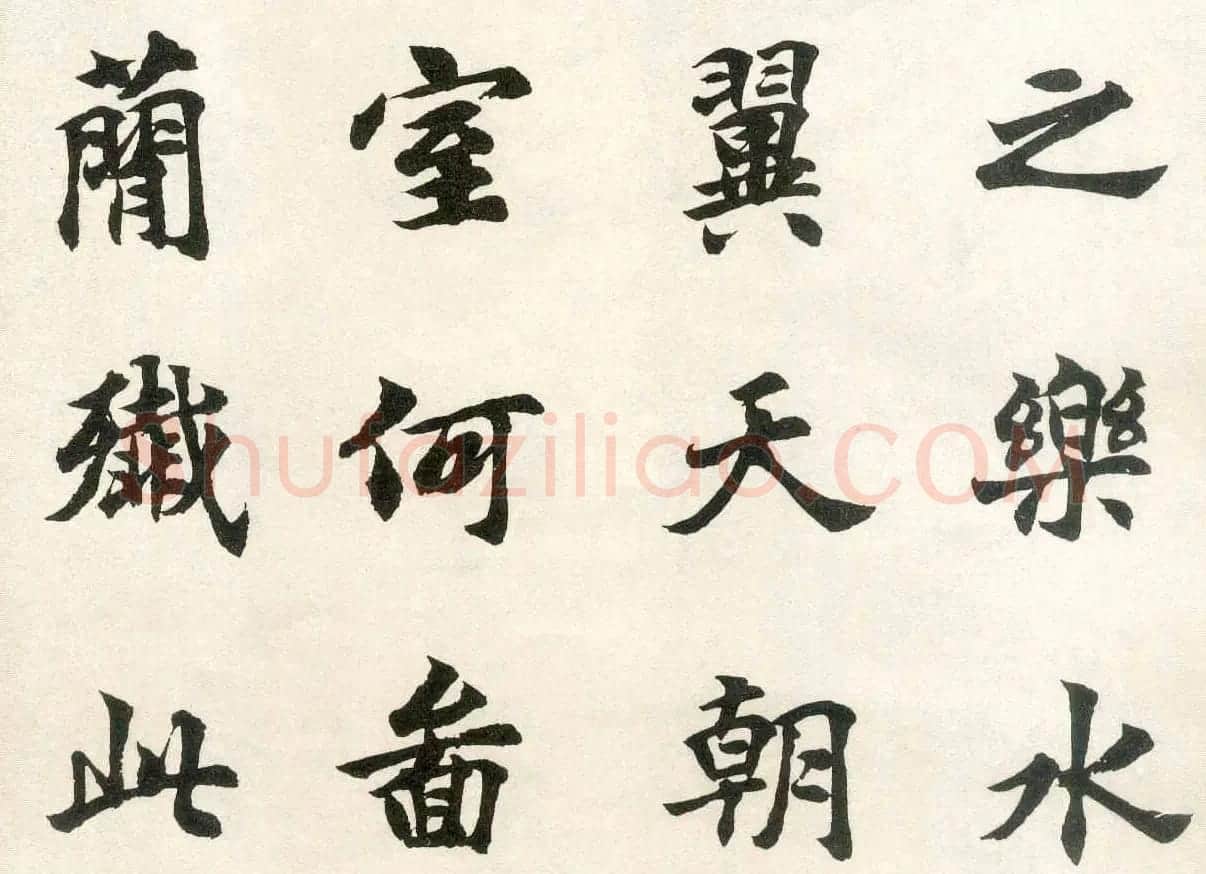 之樂水
翼天朝
室何啚
蕳殲此
Shufaziliao.COM